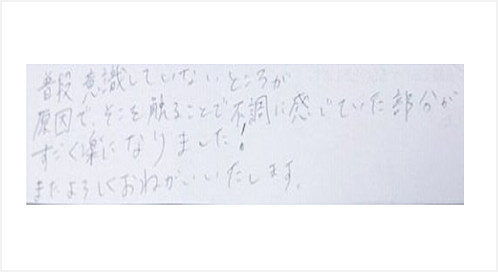 普段意識していないところが
原因で、そこを触ることで不調に感じていた部分が
すごく楽になりました!
またよろしくおねがいいたします。